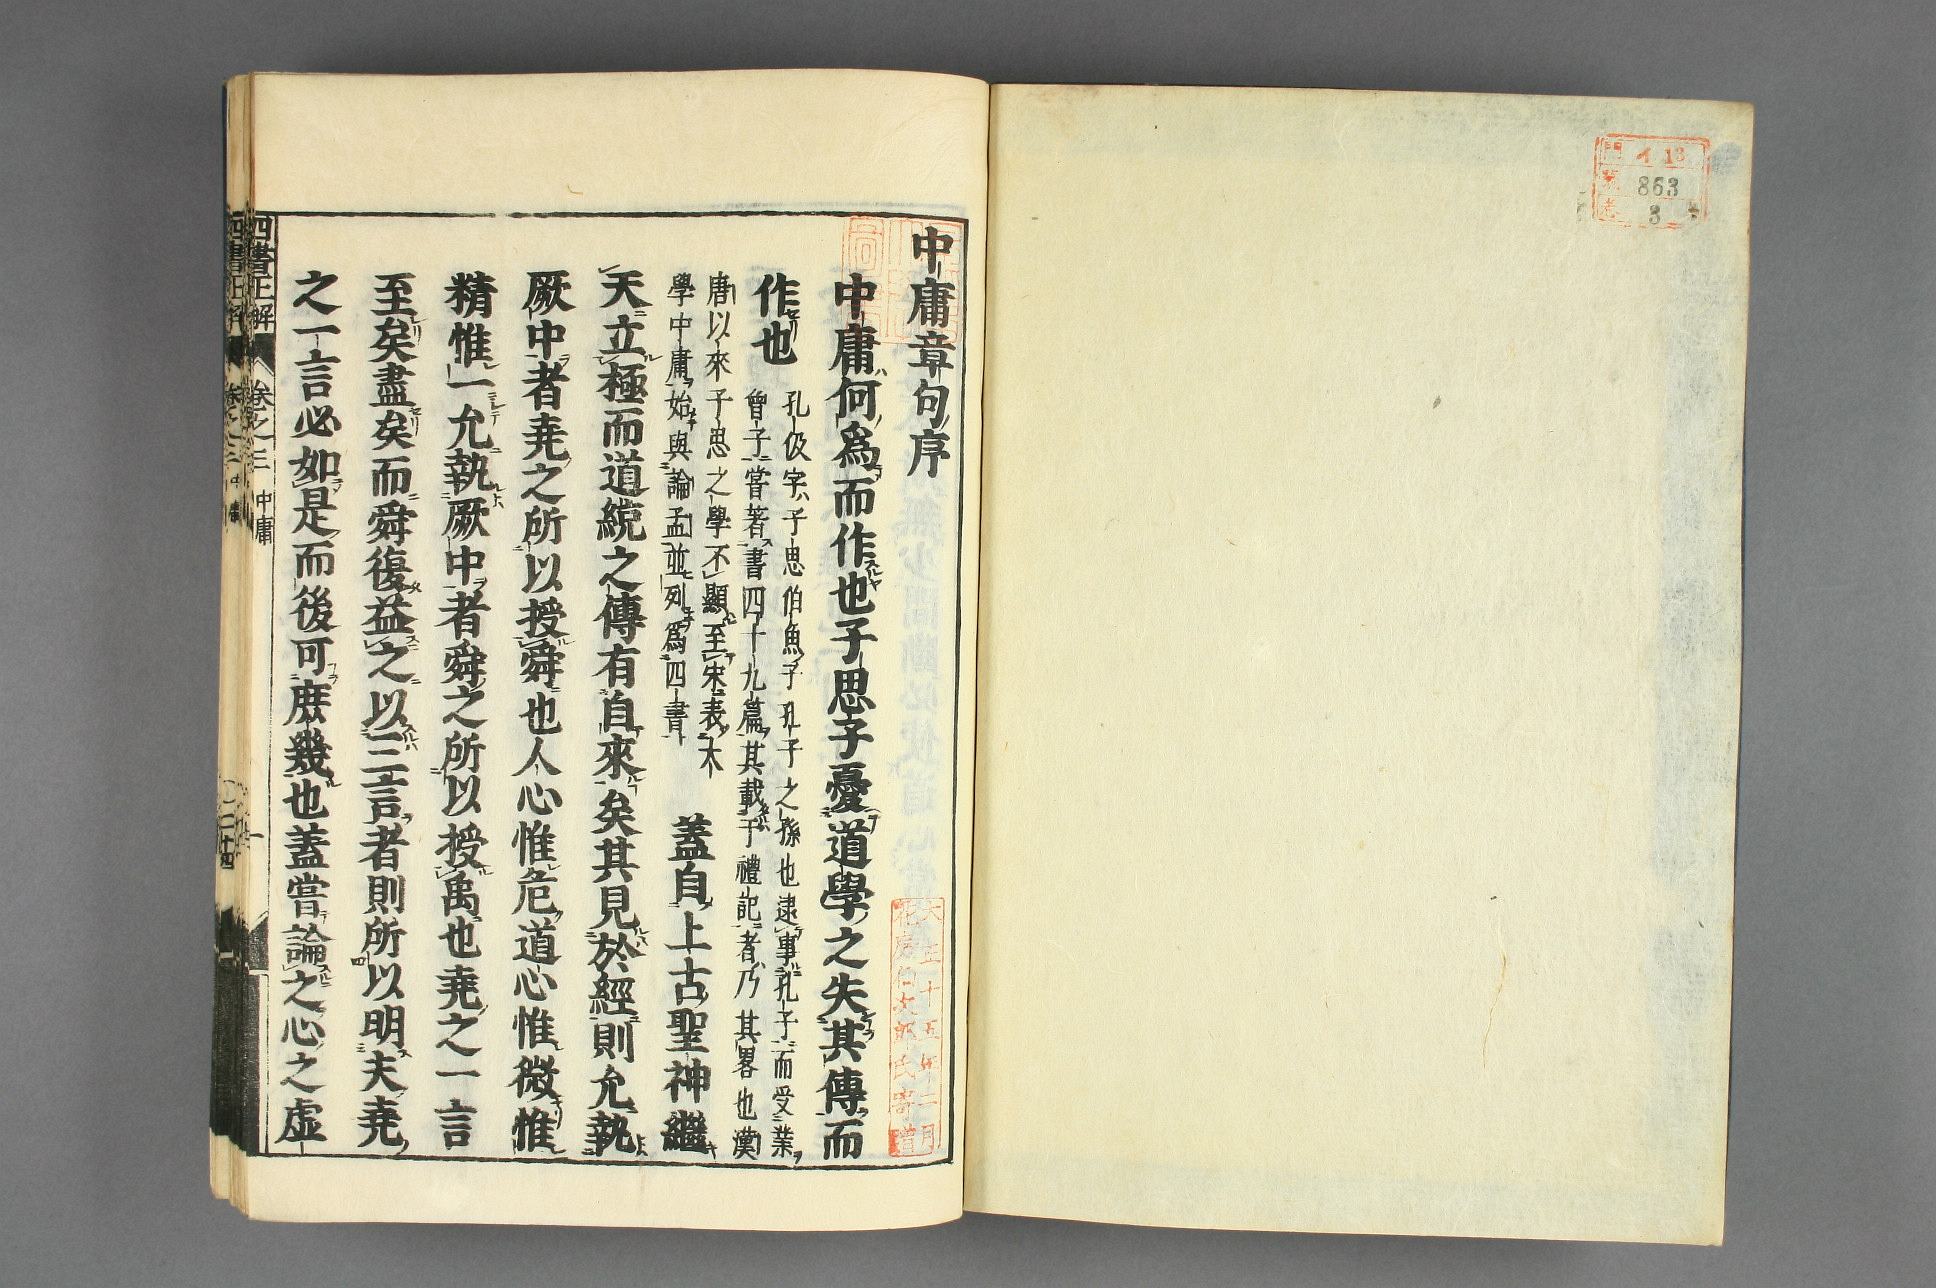 門 イ 13
號 863
卷 3
中庸章句序
中庸何爲而作也子思子憂道學之失其傳而
作也
孔伋字子思伯魚子孔子之孫也逮事孔子而受業
曾子嘗著書四十九篇其載于禮記者乃其畧也漢
唐以來子思之學不顯至宋表大
學中庸始與論孟並列爲四書
蓋自上古聖神繼
天立極而道統之傳有自來矣其見於經則允執
厥中者堯之所以授舜也人心惟危道心惟微惟
精惟一允執厥中者舜之所以授禹也堯之一言
至矣盡矣而舜復益之以三言者則所以明夫堯
之一言必如是而後可庶幾也蓋嘗論之心之虛
四書正解 卷之三 中庸 一
大正十五年二月
氏寄贈